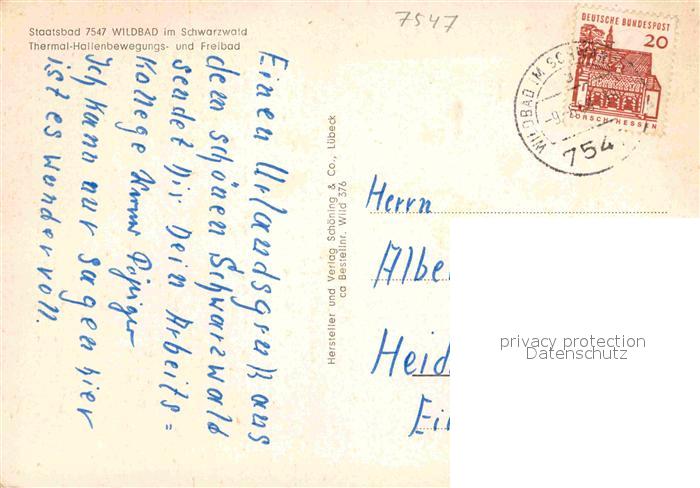 Staatsbad 7547 WILDBAD im Schwarzwald
Thermal-Hallenbewegungs- und Freibad
7547
DEUTSCHE BUNDESPOST
20
LORSCH·HESSEN
WILDBAD IM SCH
754
Einen Urlaubsgruß aus
dem schönen Schwarzwald
sendet Dir Dein Arbeits=
Kollege
Ich kann nur sagen hier
ist es wundervoll.
Hersteller und Verlag Schöning & Co., Lübeck
ca Bestellnr. Wild 376
Herrn
Albe
Heid
Ei
privacy protection
Datenschutz